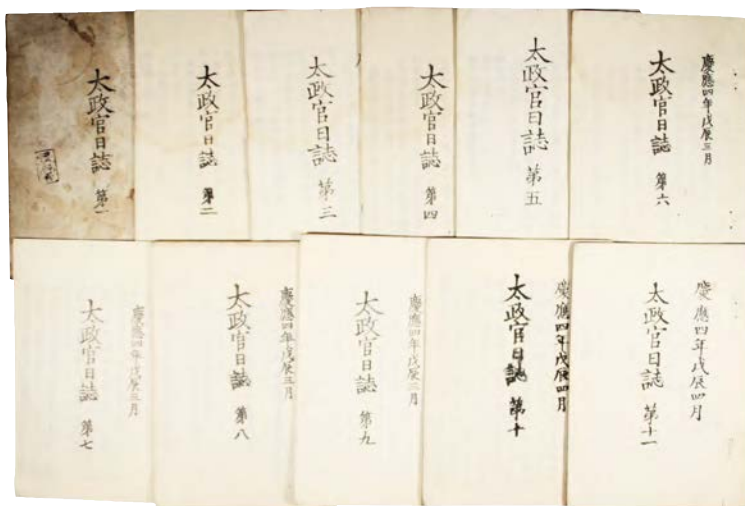 太政官日誌 第一
太政官日誌 第二
太政官日誌 第三
太政官日誌 第四
太政官日誌 第五
慶應四年戊辰三月
太政官日誌 第六
慶應四年戊辰三月
太政官日誌 第七
慶應四年戊辰三月
太政官日誌 第八
慶應四年戊辰三月
太政官日誌 第九
慶應四年戊辰四月
太政官日誌 第十
慶應四年戊辰四月
太政官日誌 第十一